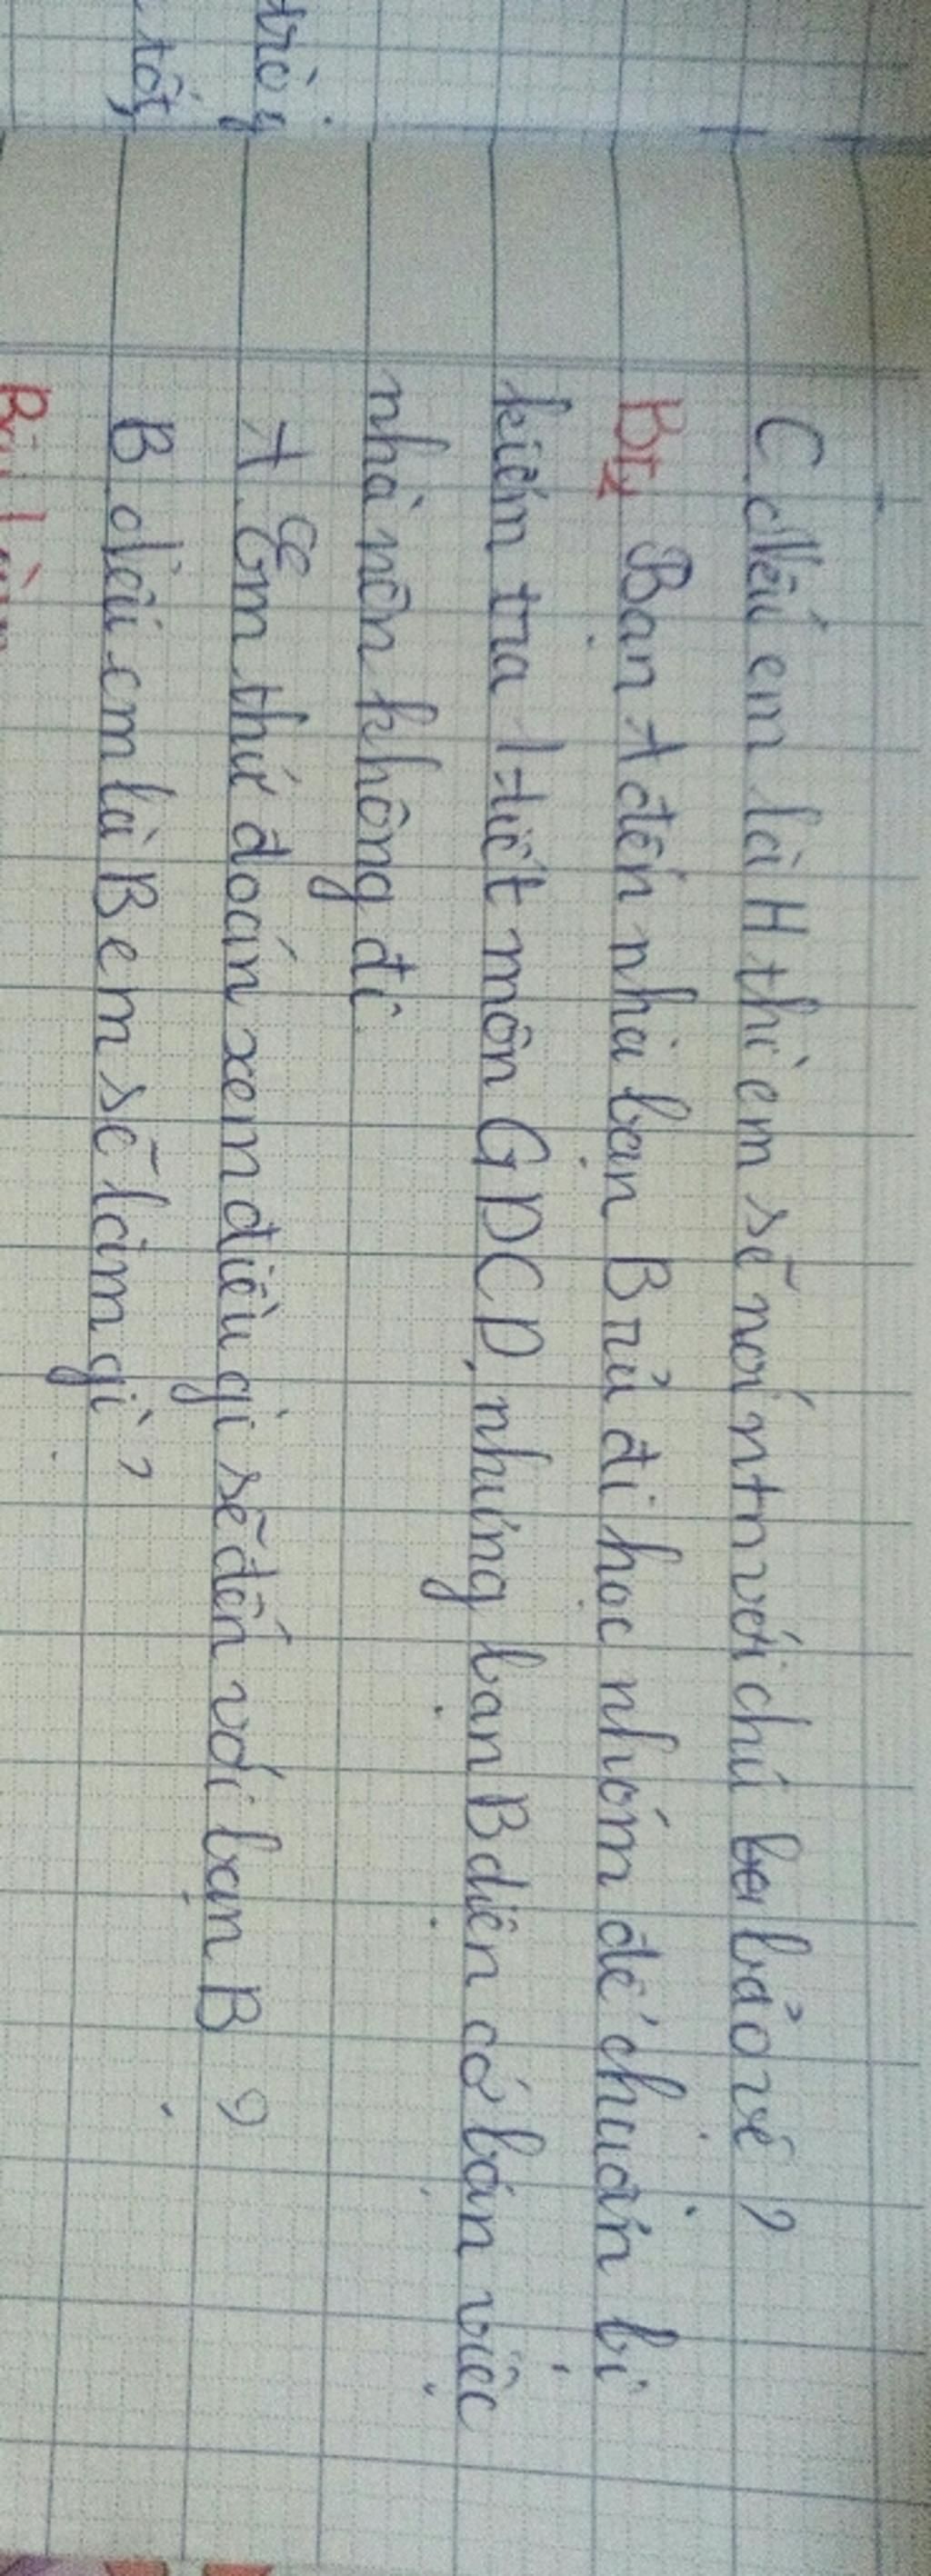 trò;
tốt,
C. Nếu em là H thì em sẽ nói ntn với chú bảo vệ?
Bt4 Bạn A đến nhà bạn B rủ đi học nhóm để chuẩn bị
kiểm tra 1 tiết môn GDCD, nhưng bạn B diện cớ bận việc
nhà nên không đi.
A. Em thử đoán xem điều gì sẽ đến với bạn B?
B. Nếu em là B em sẽ làm gì?